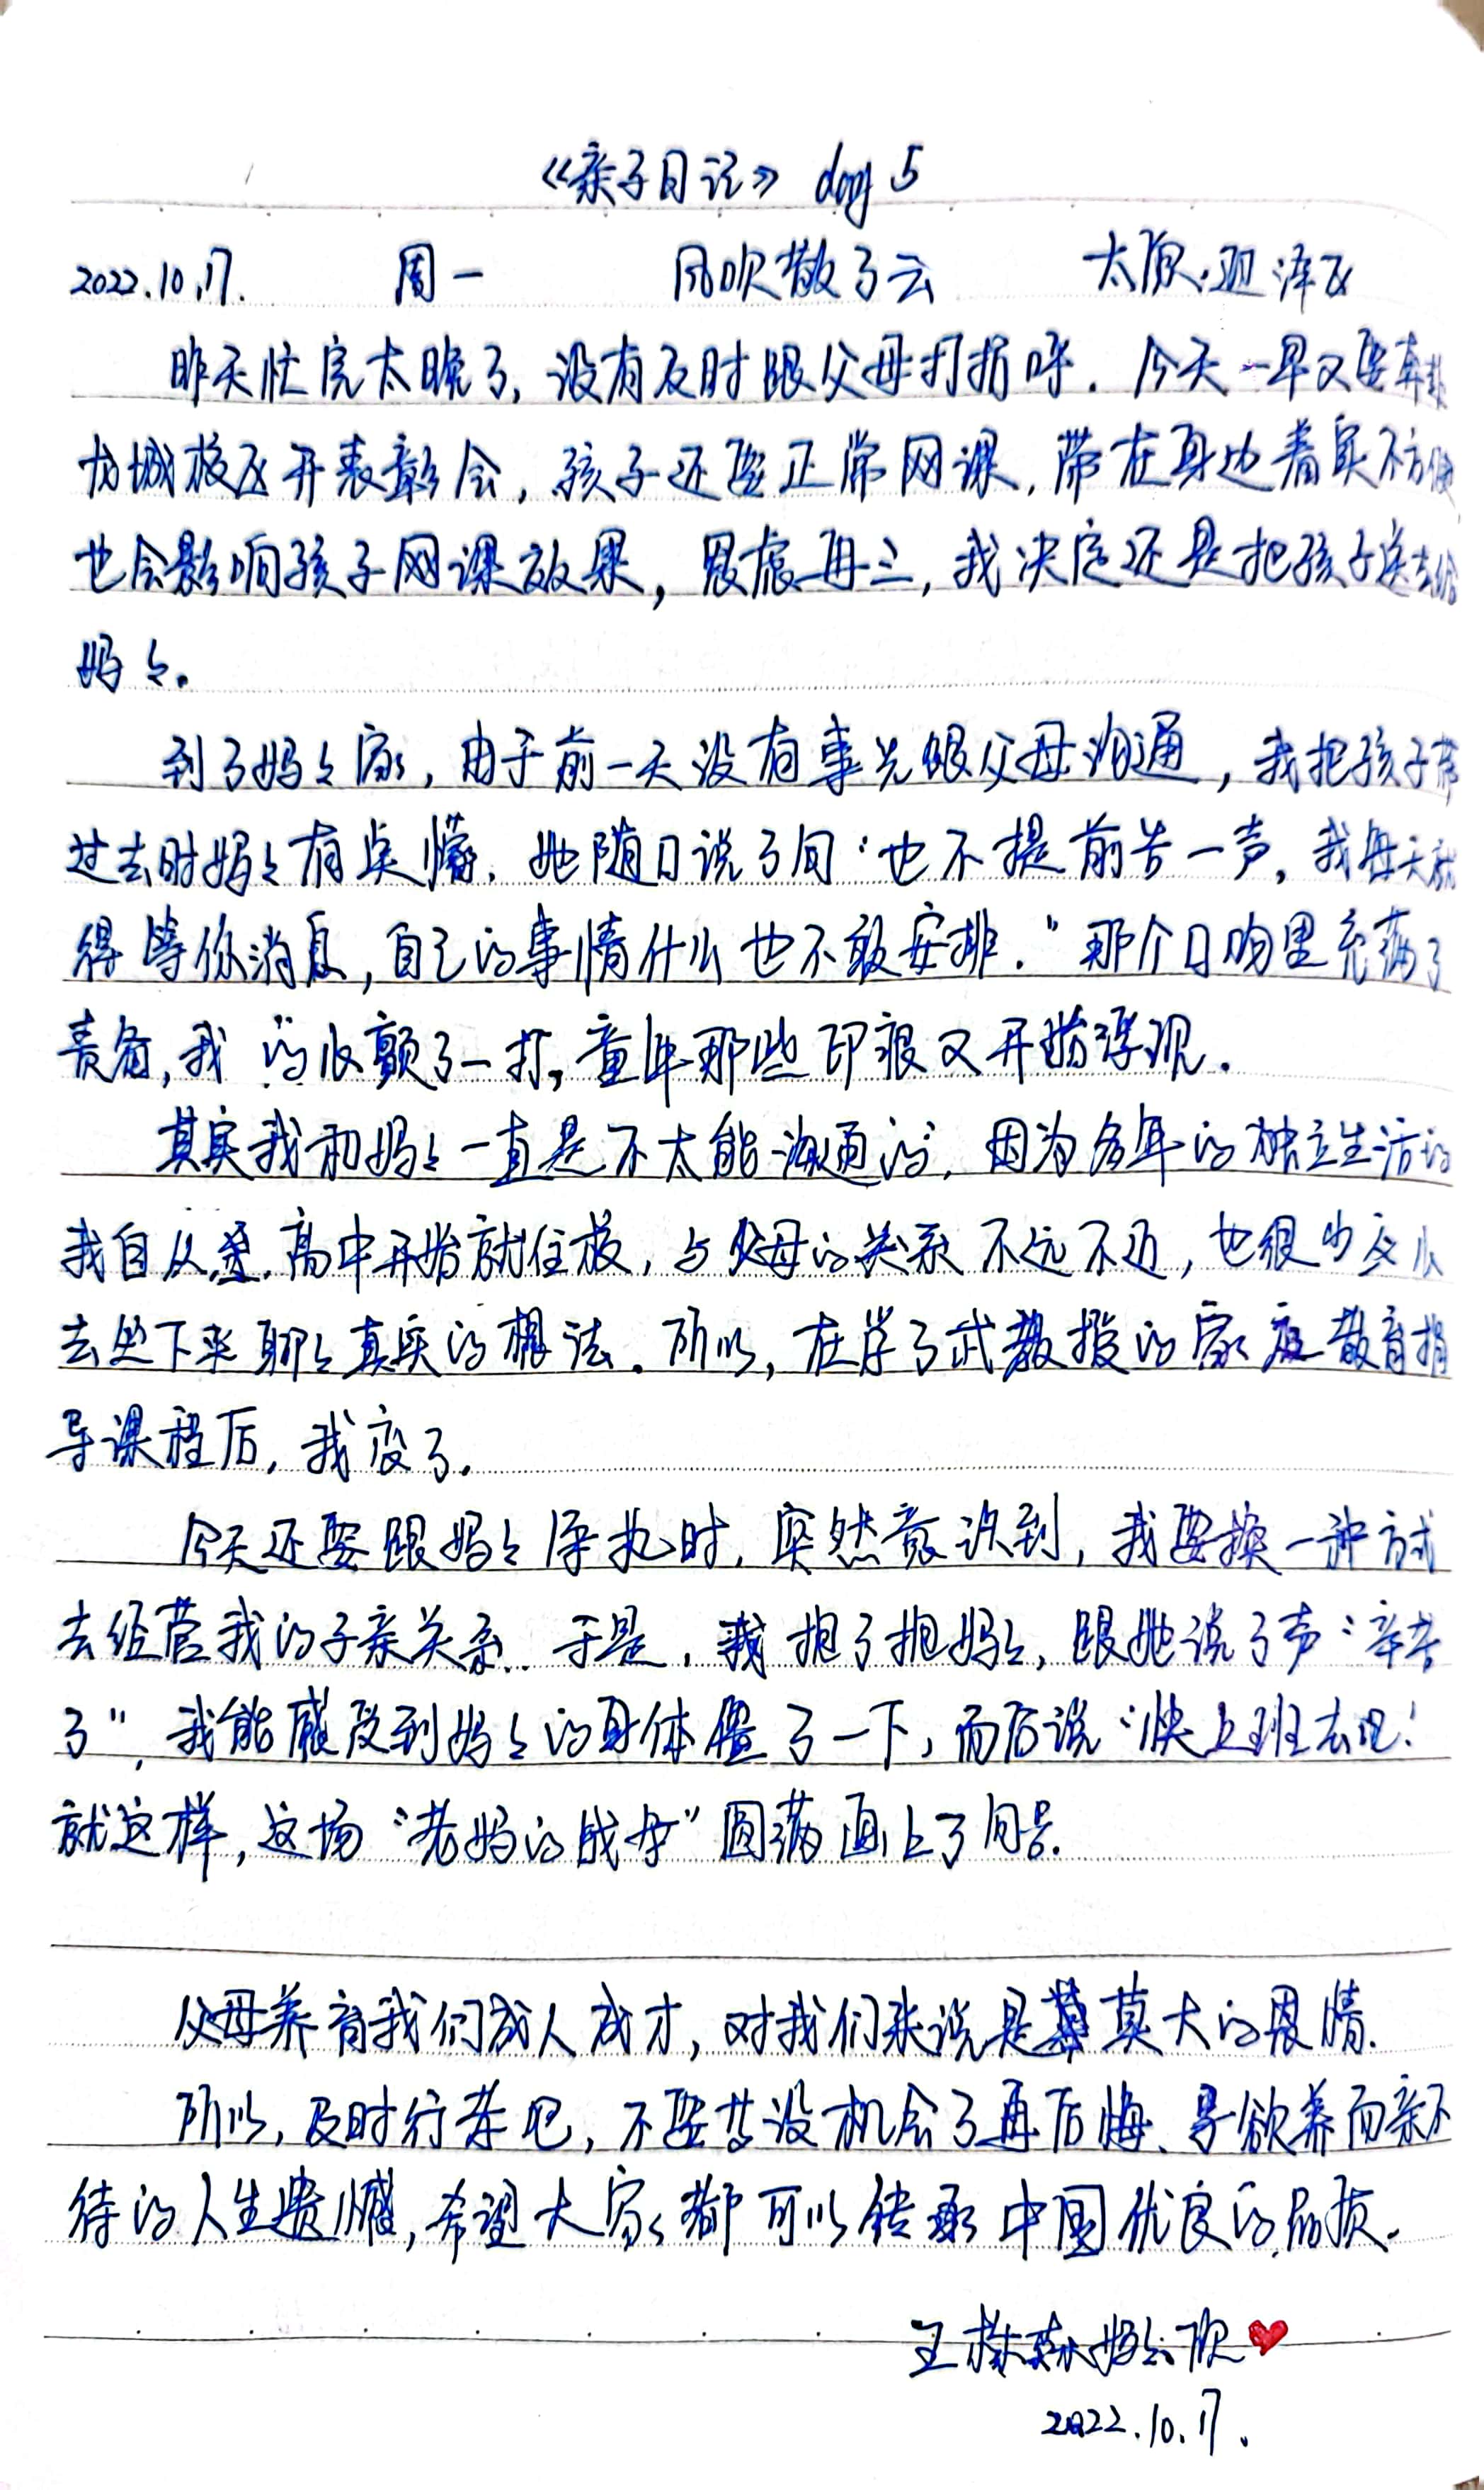 《亲子日记》 day 5
2022.10.17. 周一 风吹散了云 太原·迎泽区
昨天忙完太晚了,没有及时跟父母打招呼.今天一早又要奔赴
龙城校区开表彰会,孩子还要正常网课,带在身边着实不方便
也会影响孩子网课效果,思虑再三,我决定还是把孩子送去给
妈々。
到了妈々家,由于前一天没有事先跟父母沟通,我把孩子带
过去时妈々有点懵.她随口说了句:"也不提前告一声,我每天就
得等你消息,自己的事情什么也不敢安排."那个口吻里充满了
责备,我 的心颤了一打。童年那些印痕又开始浮现.
其实我和妈々一直是不太能沟通的,因为多年的独立生活的
我自从 高中开始就住校,与父母的关系不远不近,也很少交心
去坐下来聊々真实的想法.所以,在学了武教授的家庭教育指
导课程后,我变了.
今天还要跟妈々 时,突然意识到,我要换一种方式
去经营我的子亲关系.于是,我抱了抱妈々,跟她说了声:"辛苦
了",我能感受到妈々的身体僵了一下,而后说"快上班去吧!
就这样,这场"老妈的战争"圆满画上了句号.
父母养育我们成人成才,对我们来说是莫大的恩情.
所以,及时行孝吧,不要等没机会了再后悔、子欲养而亲不
待的人生遗憾,希望大家都可以传承中国优良的品质.
王 妈々:欣❤
2022.10.17.